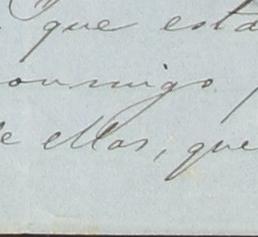 que esta
conmigo
de ellos, que